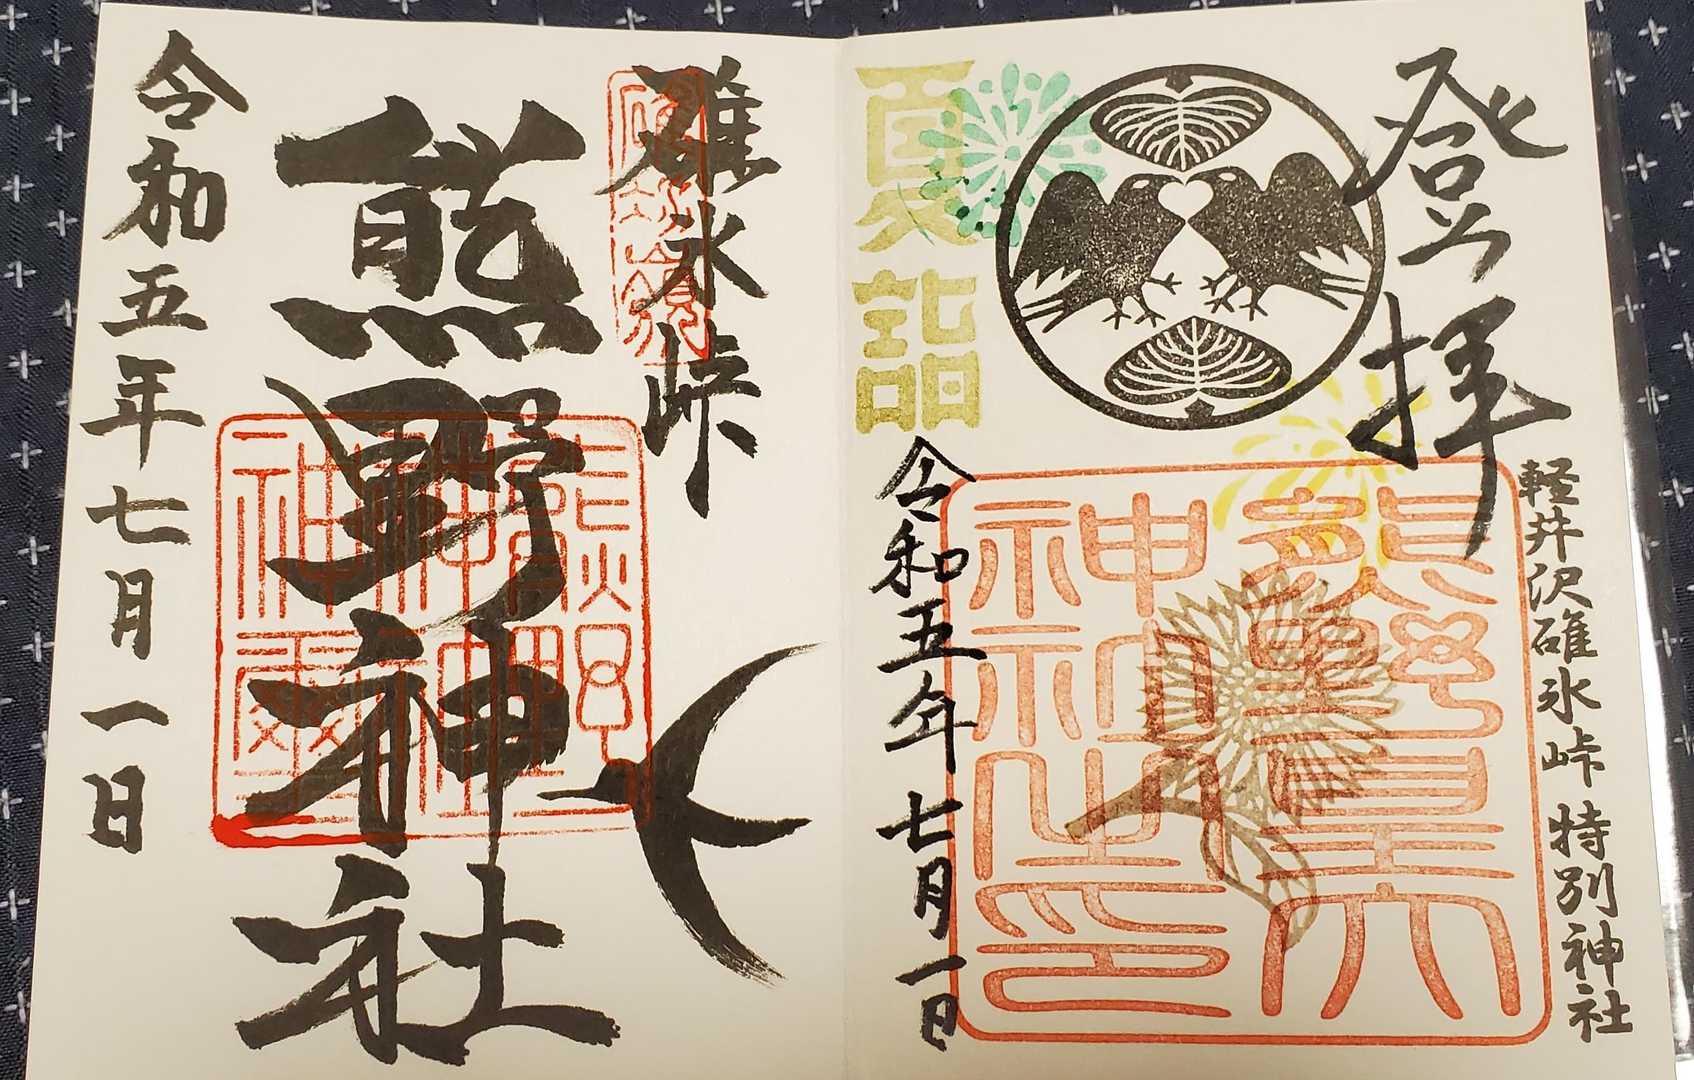 登拝
軽井沢碓氷峠特別神社
夏詣
令和五年七月一日
熊野皇大
神社之印
碓氷峠
熊野神社
令和五年七月一日